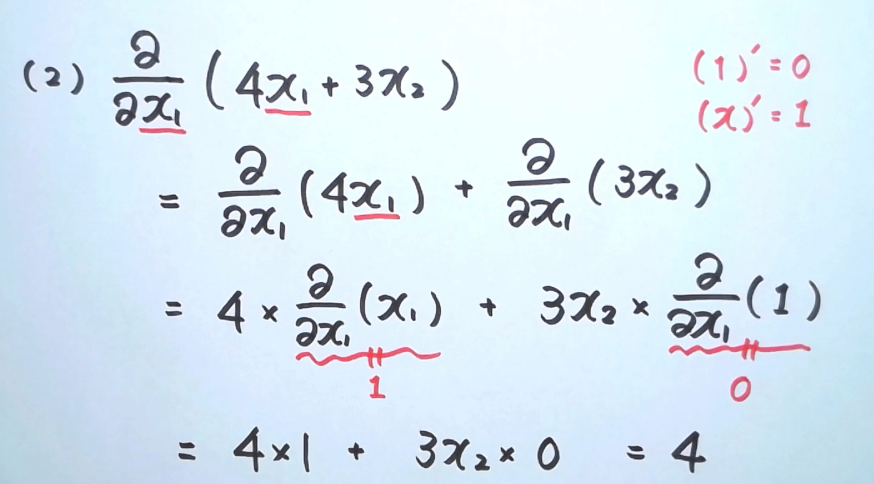 (2) ∂/∂x₁ (4x₁ + 3x₂)
(1)′ = 0
(x)′ = 1
= ∂/∂x₁ (4x₁) + ∂/∂x₁ (3x₂)
= 4 × ∂/∂x₁ (x₁) + 3x₂ × ∂/∂x₁ (1)
1 0
= 4×1 + 3x₂ × 0 = 4